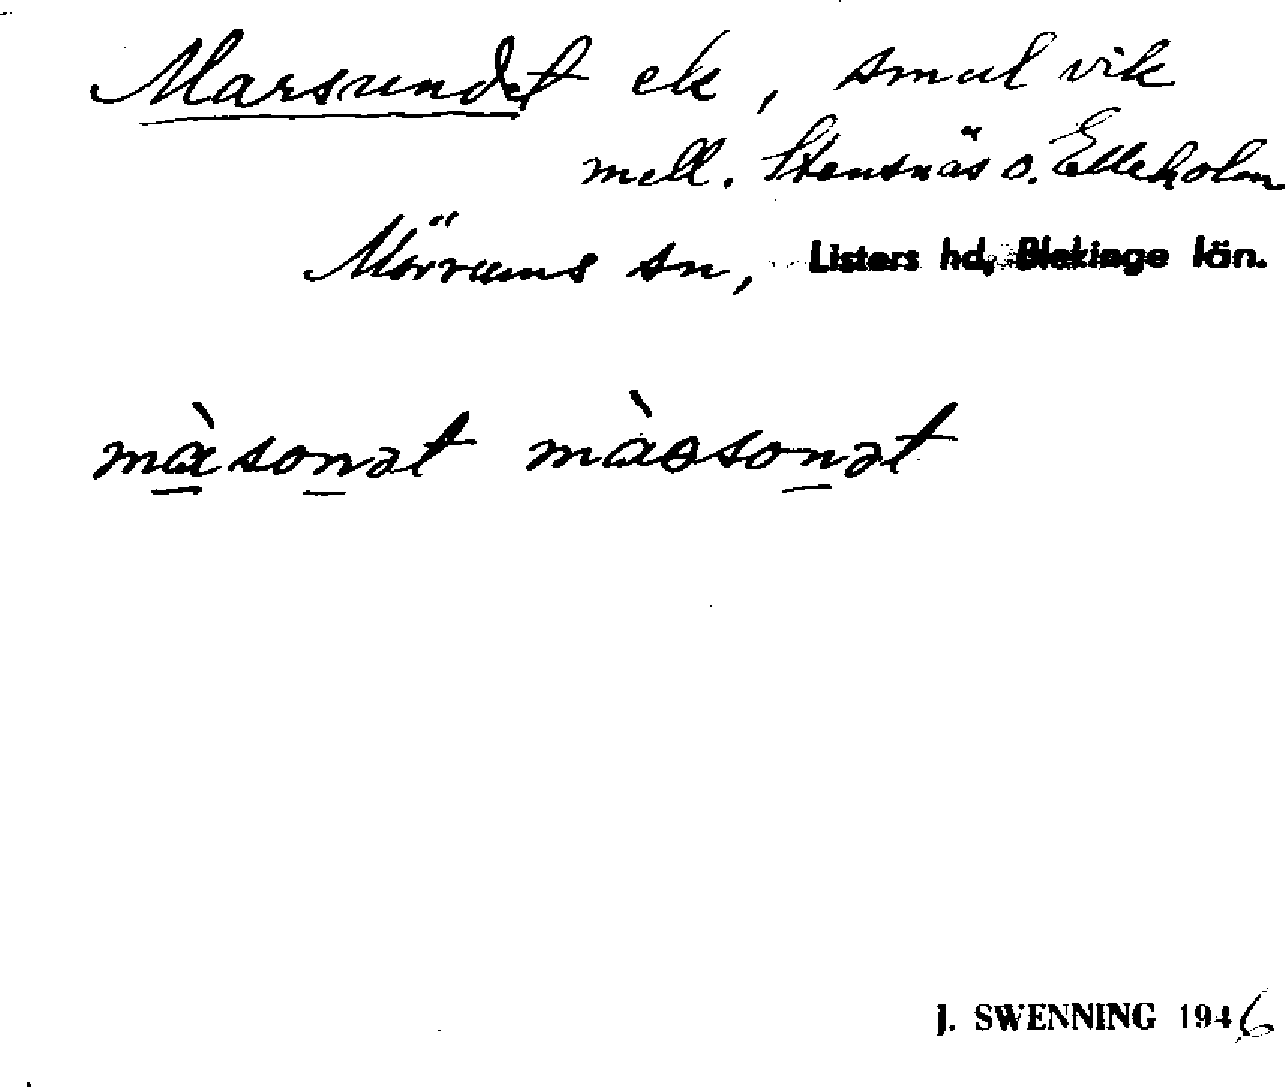 Marsundet ek, smal vik
mell. Stensnäs o. Elleholm
Mörrums sn, Listers hd, Blekinge län.
màsonət màəsonət
J. SWENNING 1946